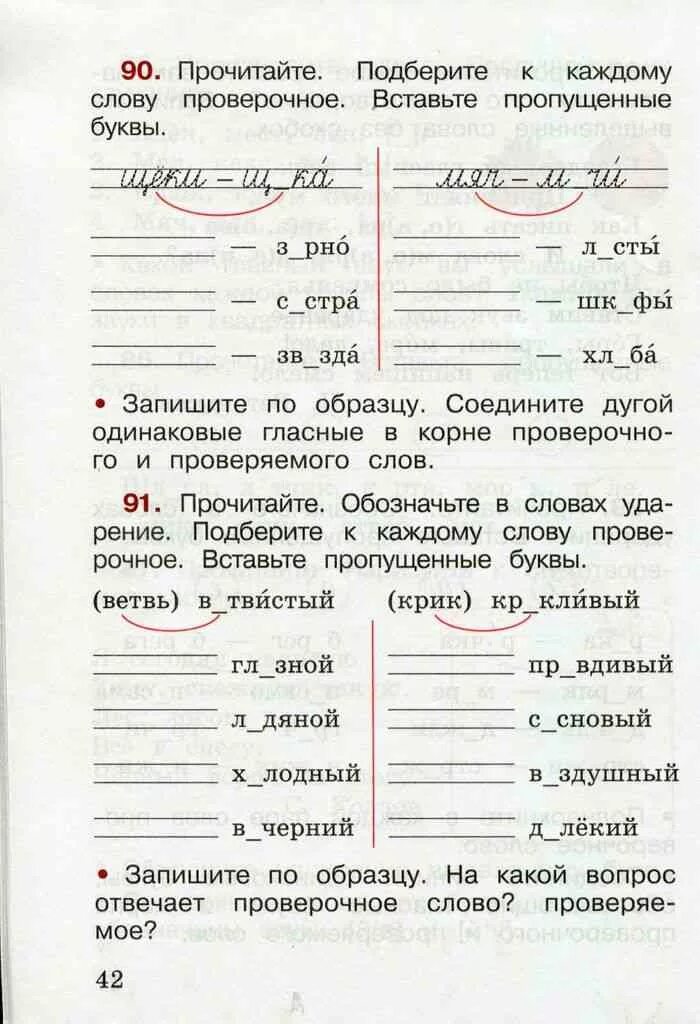 90. Прочитайте. Подберите к каждому
слову проверочное. Вставьте пропущенные
буквы.
щёки – щ_ка́ мяч – м_чи́
— з_рно́ — л_сты́
— с_стра́ — шк_фы́
— зв_зда́ — хл_ба́
• Запишите по образцу. Соедините дугой
одинаковые гласные в корне проверочно-
го и проверяемого слов.
91. Прочитайте. Обозначьте в словах уда-
рение. Подберите к каждому слову прове-
рочное. Вставьте пропущенные буквы.
(ветвь) в_тви́стый (крик) кр_кли́вый
гл_зной пр_вдивый
л_дяной с_сновый
х_лодный в_здушный
в_черний д_лёкий
• Запишите по образцу. На какой вопрос
отвечает проверочное слово? проверяе-
мое?
42